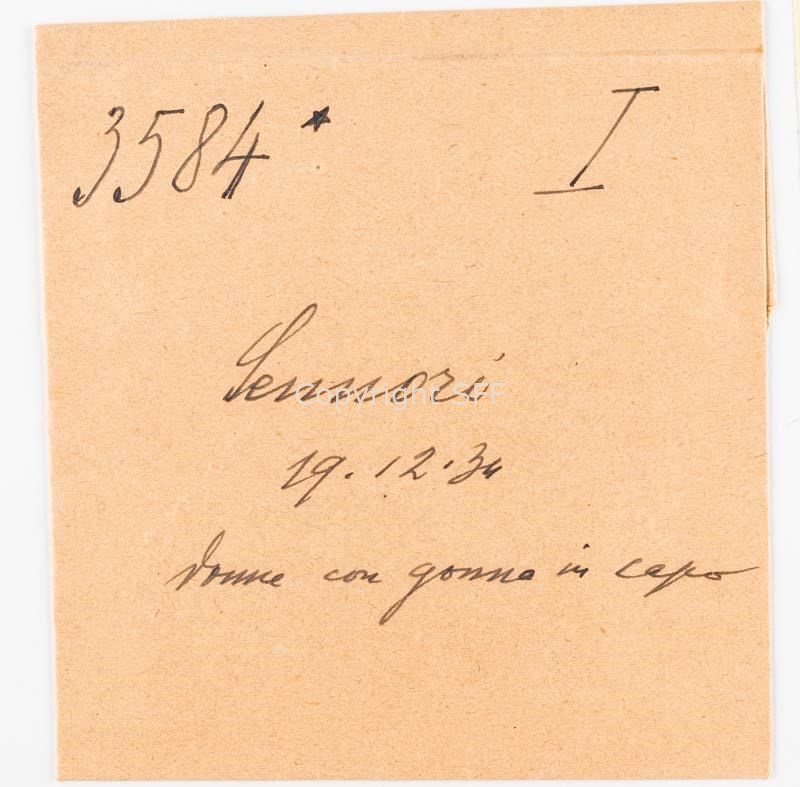 3584* I
Sennori
Copyright SFF
19.12.34
donne con gonna in capo